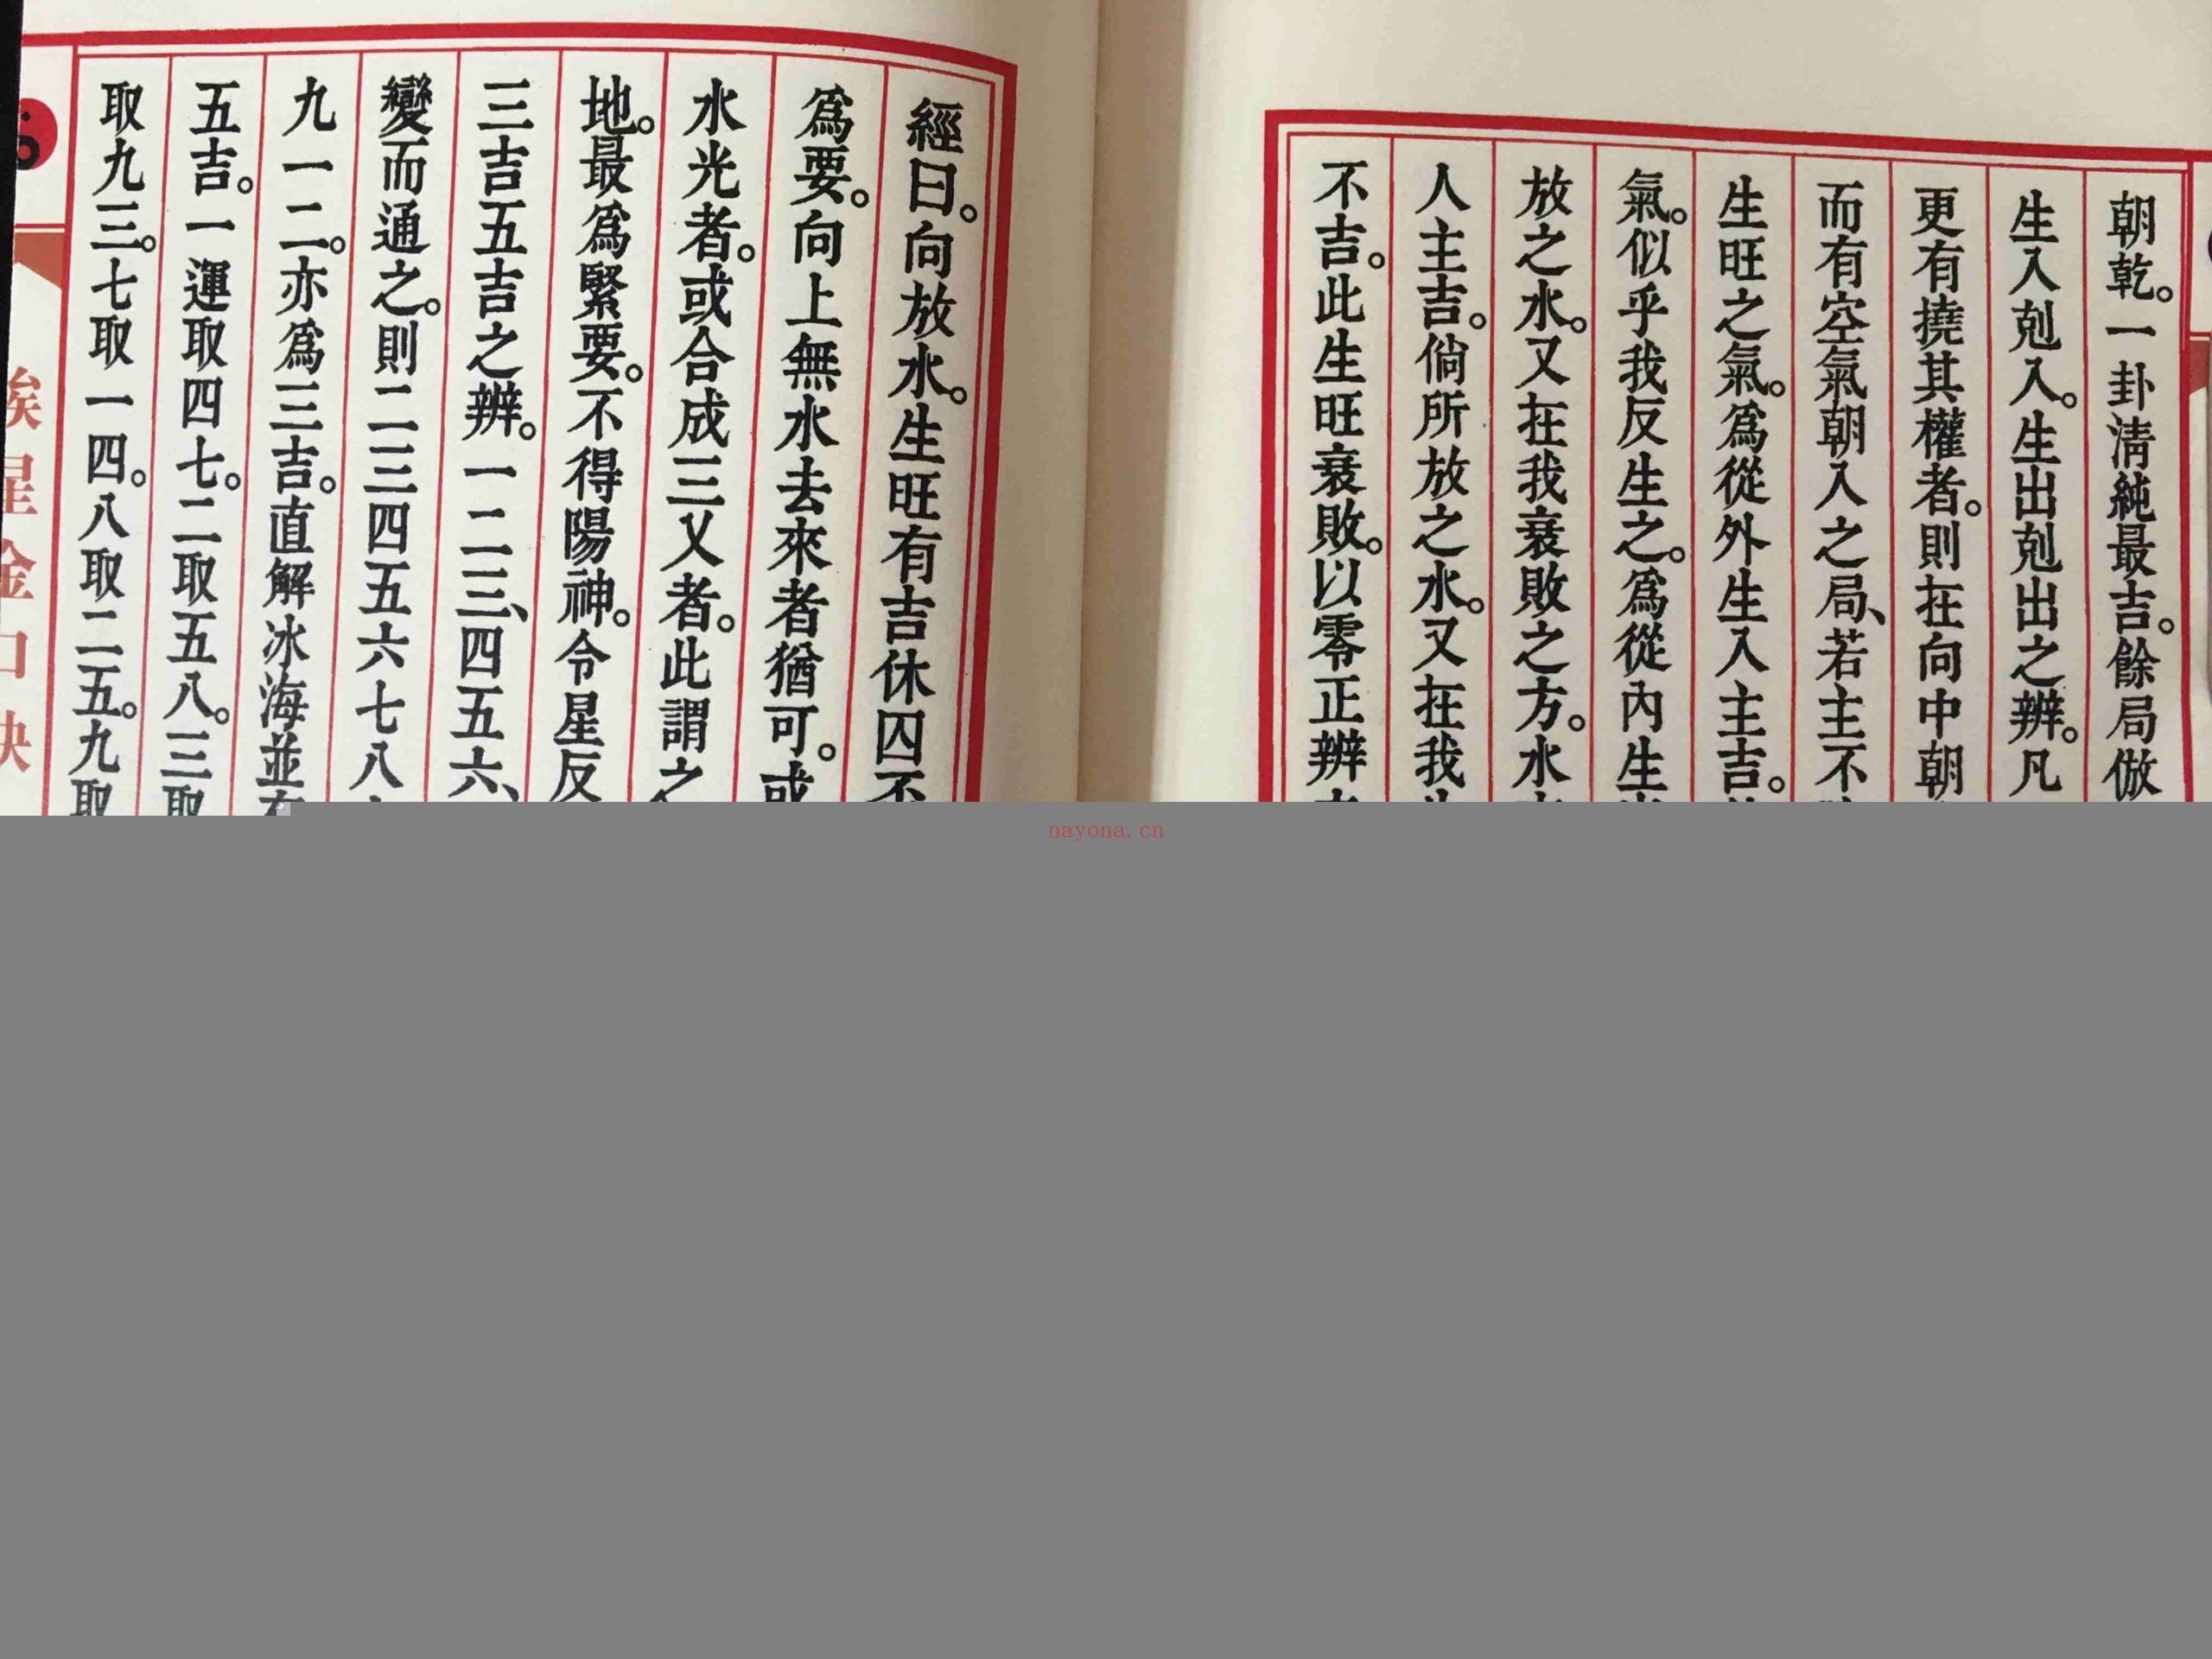 朝乾。一卦清純最吉。餘局倣
生入剋入。生出剋出之辨。凡
更有撓其權者。則在向中朝
而有空氣朝入之局、若主不
生旺之氣。為從外生入主吉。
氣。似乎我反生之。為從內生
放之水。又在我衰敗之方。水
人主吉。倘所放之水。又在我
不吉。此生旺衰敗。以零正辨
經曰。向放水。生旺有吉休囚
為要。向上無水去來者猶可。或
水光者。或合成三叉者。此謂之
地。最為緊要。不得陽神。令星反
三吉五吉之辨。一二三、四五六、
變而通之。則二三四五六七八
九一二。亦為三吉。直解冰海並
五吉。一運取四七。二取五八。三取
取九三。七取一四。八取二五。九取
nayona.cn